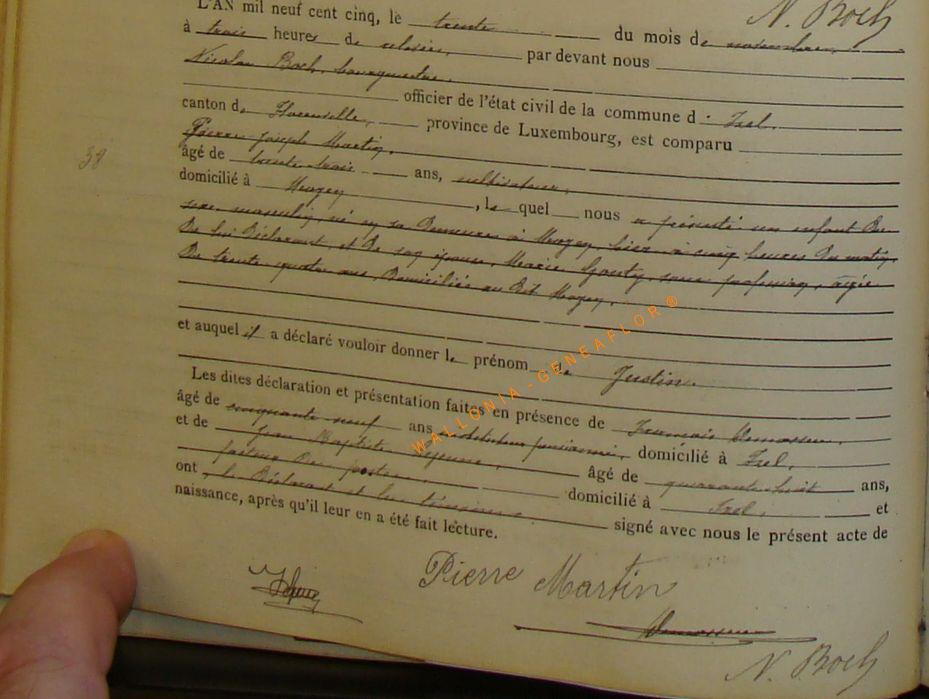 N. Boch
L'AN mil neuf cent cinq, le trente du mois de novembre,
à trois heures de relevée, par devant nous
Nicolas Boch, bourgmestre,
officier de l'état civil de la commune d'Izel,
canton de Florenville, province de Luxembourg, est comparu
Pierre-Joseph Martin,
âgé de trente-trois ans, cultivateur,
domicilié à Moyen, le quel nous a présenté un enfant du
sexe masculin, né en sa demeure à Moyen, hier à cinq heures du matin,
de lui déclarant, et de son épouse, Marie Gouty, sans profession, âgée
de trente-quatre ans, domiciliée au dit Moyen,
et auquel il a déclaré vouloir donner le prénom de Justin.
Les dites déclaration et présentation faites en présence de François
âgé de cinquante neuf ans instituteur pensionné, domicilié à Izel,
et de Jean Baptiste Lejeune, âgé de quarante-huit ans,
facteur des postes, domicilié à Izel, et
ont le déclarant et les témoins signé avec nous le présent acte de
naissance, après qu'il leur en a été fait lecture.
Pierre Martin
N. Boch
38
WALLONIA-GENEAFLOR®